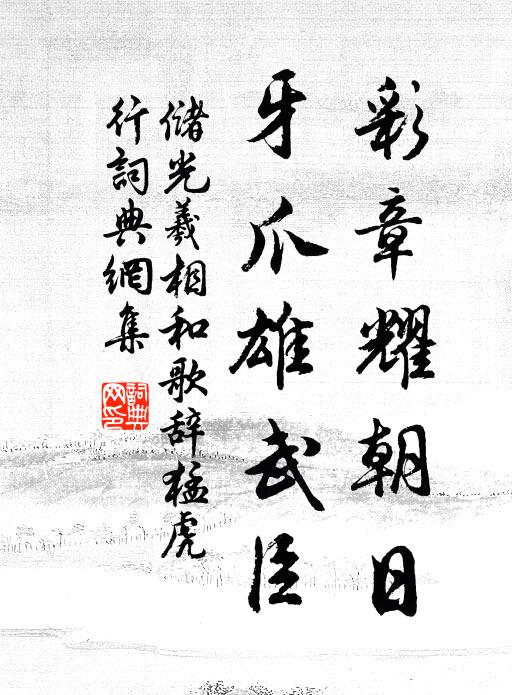 彩章耀朝日
牙爪雄武臣
儲光羲相和歌辞猛虎
行詞典網集
詞典网印